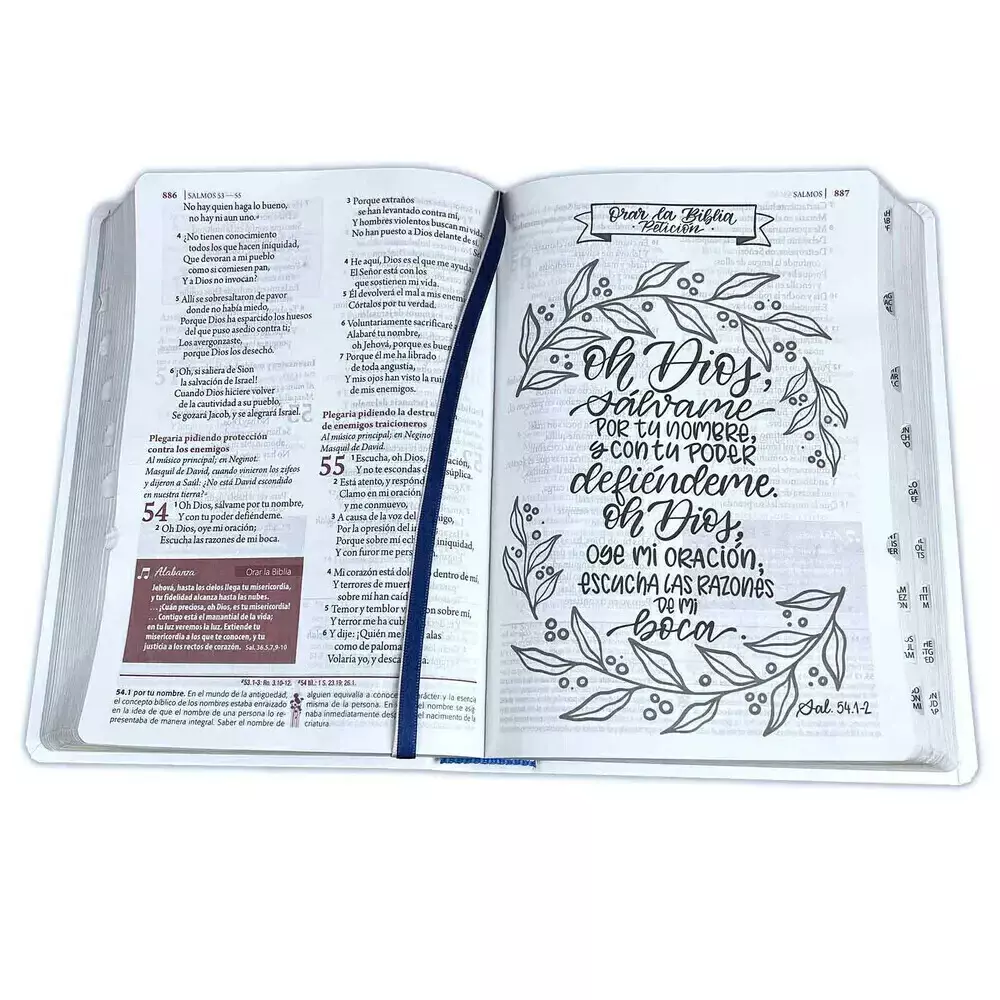 886 | SALMOS 53—55
No hay quien haga lo bueno,
no hay ni aun uno.ª
4 ¿No tienen conocimiento
todos los que hacen iniquidad,
Que devoran a mi pueblo
como si comiesen pan,
Y a Dios no invocan?
5 Allí se sobresaltaron de pavor
donde no había miedo,
Porque Dios ha esparcido los huesos
del que puso asedio contra ti;
Los avergonzaste,
porque Dios los desechó.
6 ¡Oh, si saliera de Sion
la salvación de Israel!
Cuando Dios hiciere volver
de la cautividad a su pueblo,
Se gozará Jacob, y se alegrará Israel.
Plegaria pidiendo protección
contra los enemigos
Al músico principal; en Neginot.
Masquil de David, cuando vinieron los zifeos
y dijeron a Saúl: ¿No está David escondido
en nuestra tierra?ª
54 1 Oh Dios, sálvame por tu nombre,
Y con tu poder defiéndeme.
2 Oh Dios, oye mi oración;
Escucha las razones de mi boca.
Alabanza Orar la Biblia
Jehová, hasta los cielos llega tu misericordia,
y tu fidelidad alcanza hasta las nubes.
. . . ¡Cuán preciosa, oh Dios, es tu misericordia!
. . . Contigo está el manantial de la vida;
en tu luz veremos la luz. Extiende tu
misericordia a los que te conocen, y tu
justicia a los rectos de corazón. Sal. 36.5,7,9-10
3 Porque extraños
se han levantado contra mí,
Y hombres violentos buscan mi vida
No han puesto a Dios delante de sí.
4 He aquí, Dios es el que me ayuda
El Señor está con los
que sostienen mi vida.
5 Él devolverá el mal a mis enem
Córtalos por tu verdad.
6 Voluntariamente sacrificaré
Alabaré tu nombre,
oh Jehová, porque es buen
7 Porque él me ha librado
de toda angustia,
Y mis ojos han visto la rui
de mis enemigos.
Plegaria pidiendo la destru
de enemigos traicioneros
Al músico principal; en Negino
Masquil de David.
55 1 Escucha, oh Dios, ación,
Y no te escondas súplica.
2 Está atento, y respón
Clamo en mi oración
y me conmuevo,
3 A causa de la voz del igo,
Por la opresión del im
Porque sobre mí ech iniquidad,
Y con furor me pers
4 Mi corazón está dolo dentro de mí,
Y terrores de muert
sobre mí han caíd
5 Temor y temblor v on sobre mí,
Y terror me ha cub
6 Y dije: ¡Quién me alas
como de paloma
Volaría yo, y desca
ª53.1-3: Ro. 3.10-12. ª54 tít.: 1 S. 23.19; 26.1.
54.1 por tu nombre. En el mundo de la antigüedad,
el concepto bíblico de los nombres estaba enraizado
en la idea de que el nombre de una persona lo re-
presentaba de manera integral. Saber el nombre de
alguien equivalía a conoce carácter y la esencia
misma de la persona. En el nombre se asig
naba inmediatamente des el nacimiento de la
criatura
SALMOS | 887
Orar la Biblia
· Petición ·
Oh, Dios,
sálvame
por tu nombre,
y con tu poder
defiéndeme.
Oh Dios,
oye mi oración;
escucha las razones
de mi
boca.
Sal. 54.1-2